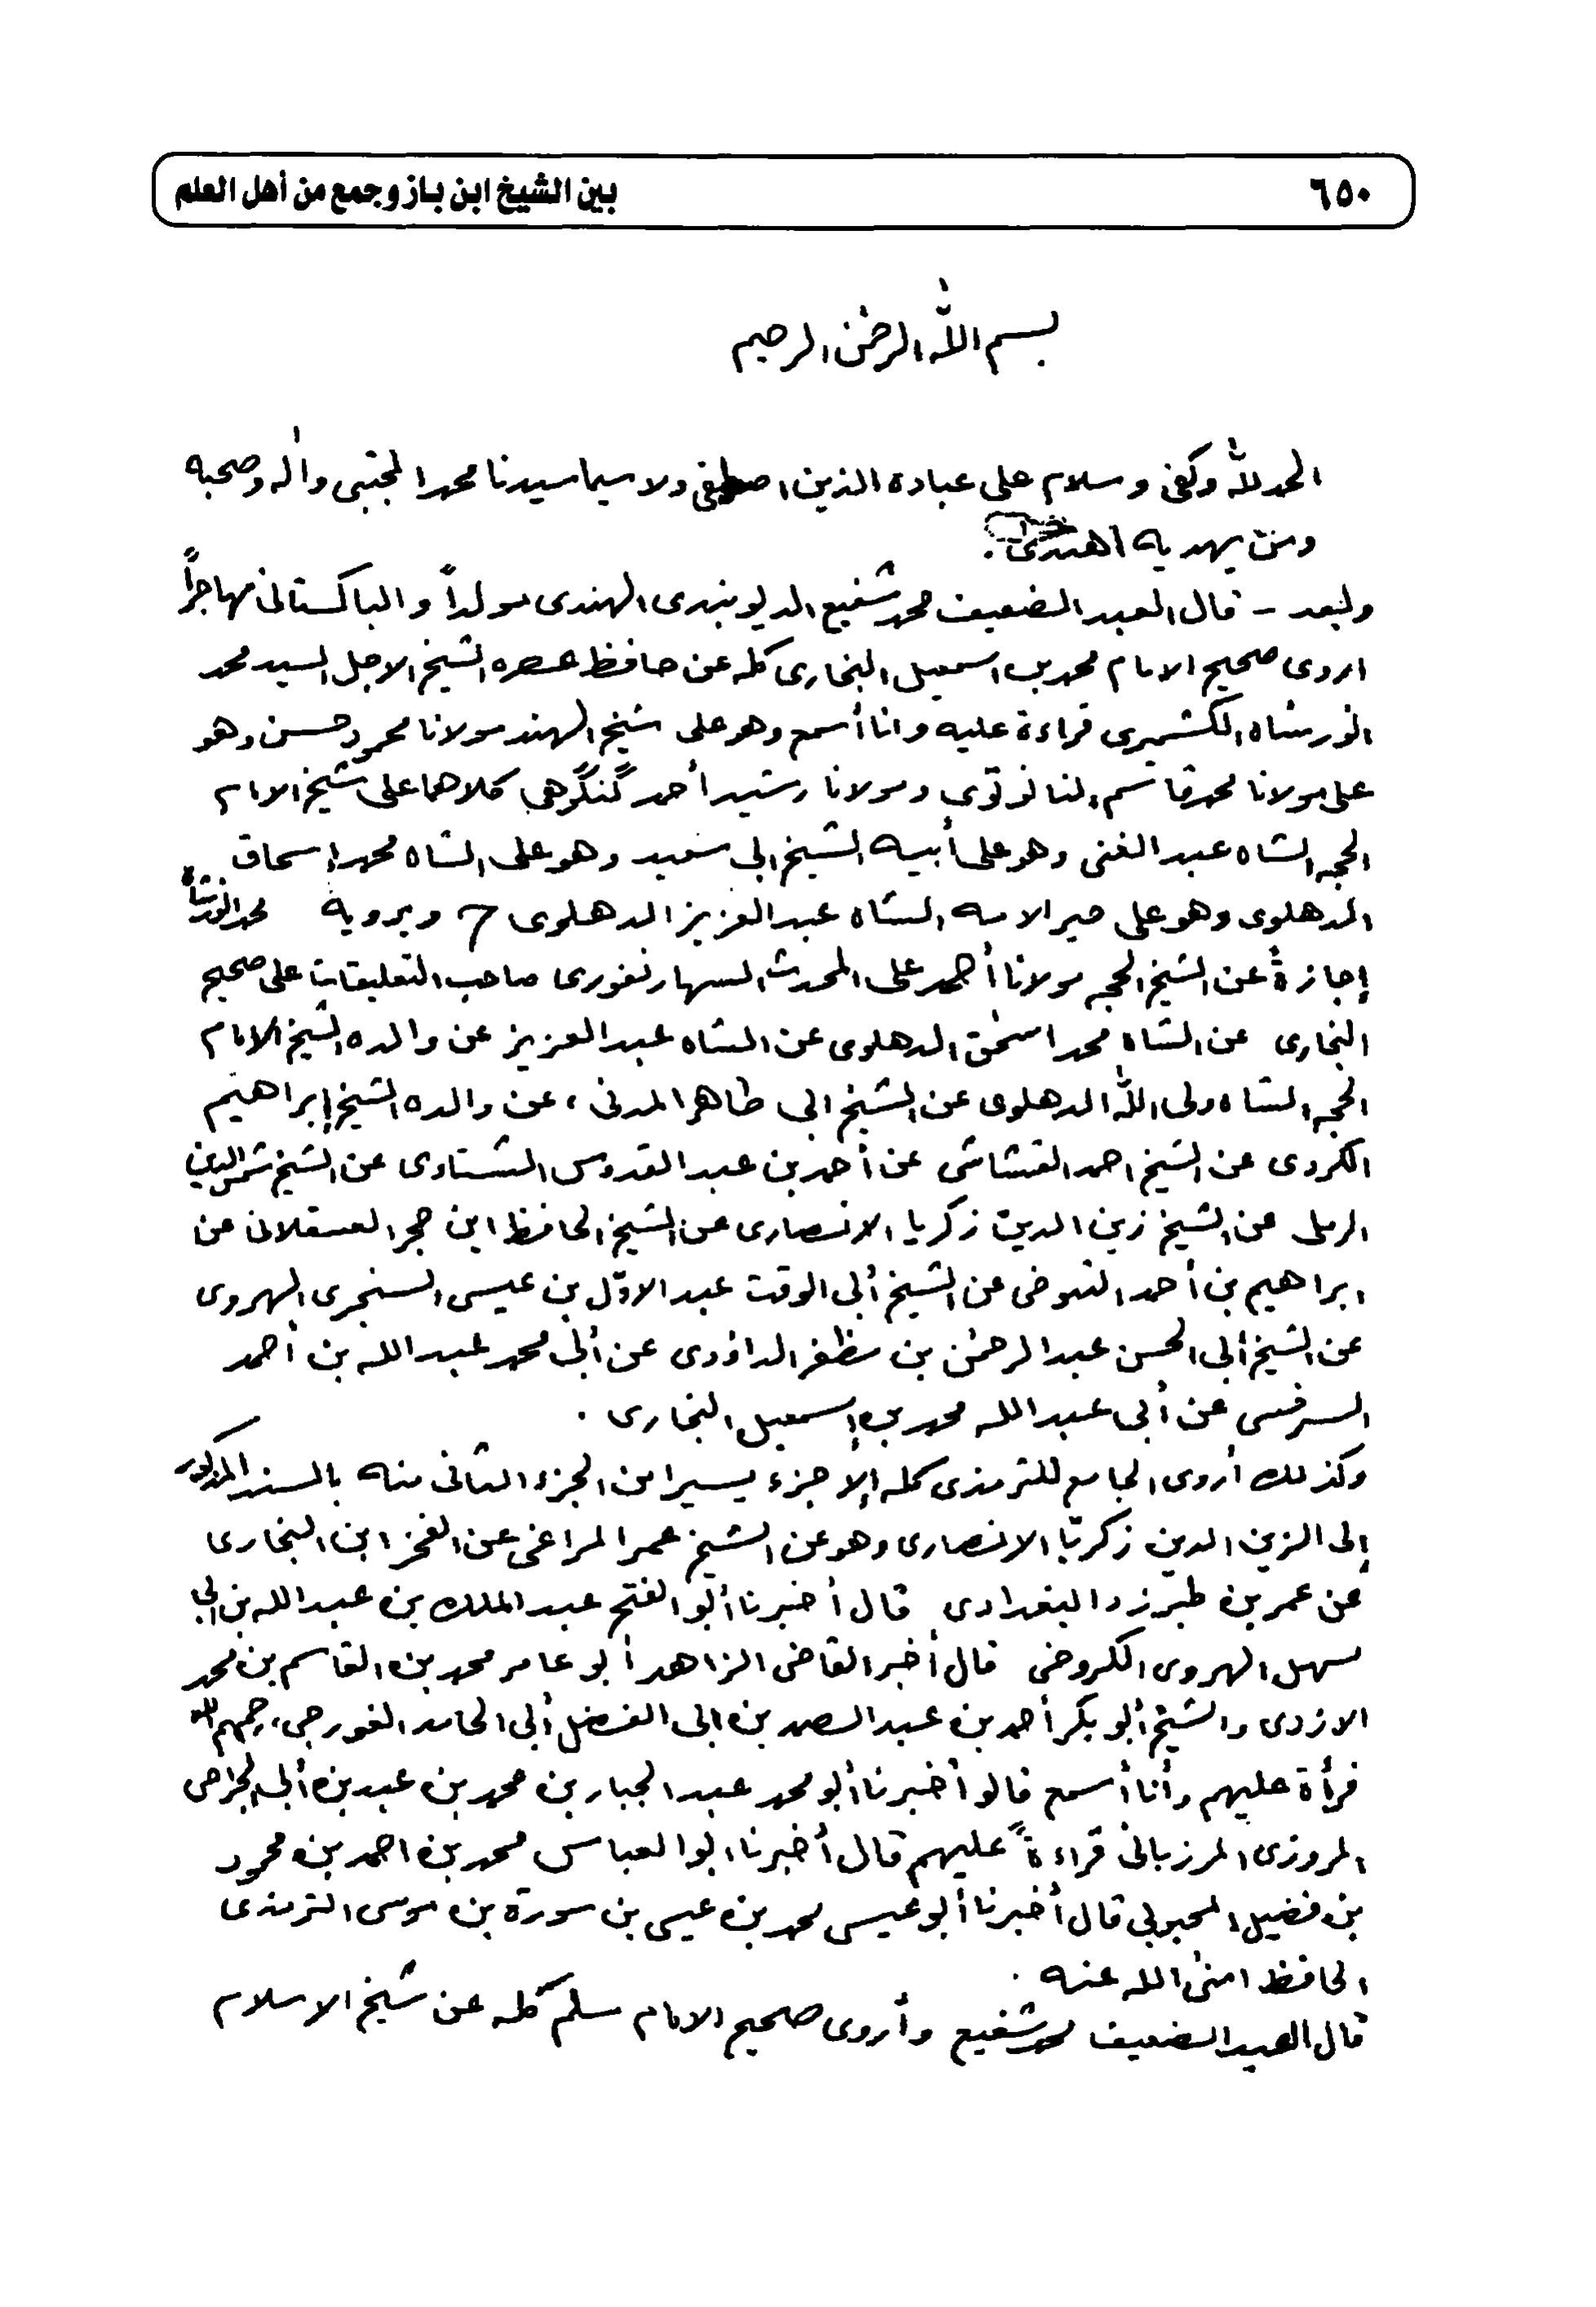 ٦٥٠
بين الشيخ ابن باز وجمع من أهل العلم
بسم الله الرحمٰن الرحيم
الحمد لله وكفى وسلام على عباده الذين اصطفى ولا سيما سيدنا محمد المجتبى واٰله وصحبه
ومن يهديه اهتدى .
وبعد – قال العبد الضعيف محمد شفيع الديوبندى الهندى مولداً والباكستانى مهاجراً
اروى صحيح الامام محمد بن اسمعيل البخارى كله عن حافظ عصره الشيخ الاجل السيد محمد
انور شاه الكشميرى قراءة عليه وانا أسمع وهو على شيخ الهند مولانا محمود حسن وهو
على مولانا محمد قاسم النانوتوى ومولانا رشيد أحمد گنگوهى كلاهما على شيخ الامام
الحجه الشاه عبد الغنى وهو على أبيه الشيخ ابى سعيد وهو على الشاه محمد اسحاق
الدهلوى وهو على حبر الامه الشاه عبد العزيز الدهلوى ح ويرويه محمد انور شاه
إجازةً عن الشيخ الحجه مولانا أحمد على المحدث السهارنفورى صاحب التعليقات على صحيح
البخارى عن الشاه محمد اسحٰق الدهلوى عن الشاه عبد العزيز عن والده الشيخ الامام
الحجه الشاه ولى الله الدهلوى عن الشيخ ابى طاهر المدنى ، عن والده الشيخ إبراهيم
الكردى عن الشيخ احمد القشاشى عن أحمد بن عبد القدوس الشناوى عن الشيخ شمس الدين
الرملى عن الشيخ زين الدين زكريا الانصارى عن الشيخ الحافظ ابن حجر العسقلانى عن
ابراهيم بن أحمد التنوخى عن الشيخ أبى الوقت عبد الاوّل بن عيسى السنجرى الهروى
عن الشيخ أبى الحسن عبد الرحمٰن بن مظفر الداؤدى عن أبى محمد عبد الله بن أحمد
السرخسى عن أبى عبد الله محمد بن إسمعيل البخارى .
وكذلك أروى الجامع للترمذى كله إلا جزء يسيرا من الجزء الثانى منه بالسند المذكور
إلى الزين الدين زكريّا الانصارى وهو عن الشيخ عمر المراغى عن الفخر ابن البخارى
عن عمر بن طبرزد البغدادى قال أخبرنا أبو الفتح عبد الملك بن عبد الله بن ابى
سهل الهروى الكروخى قال أخبر القاضى الزاهد أبو عامر محمد بن القاسم بن محمد
الازدى والشيخ أبو بكر أحمد بن عبد الصمد بن ابى الفضل أبى الحامد الغورجى، رحمهم الله
قرأة عليهم وأنا أسمع قالو أخبرنا أبو محمد عبد الجبار بن محمد بن عبد بن أبى الجراحى
المروزى المرزبانى قراءةً عليهم قال أخبرنا ابو العباس محمد بن احمد بن محمود
بن فضيل المحبوبى قال أخبرنا أبو عيسى محمد بن عيسى بن سورة بن موسى الترمذى
الحافظ الله عنه .
قال العبد الضعيف محمد شفيع وأروى صحيح الامام مسلم كله عن شيخ الاسلام